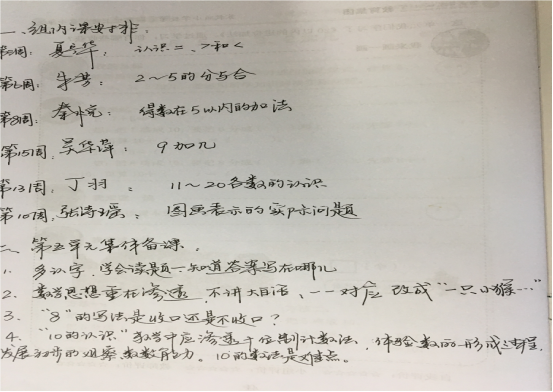 一、组内课安排:
第5周: 夏星华, 认识=、>和<
第6周: 朱芳: 2~5的分与合
第8周: 秦悦: 得数在5以内的加法
第15周, 吴华萍: 9加几
第13周, 丁羽: 11~20各数的认识
第10周, 张诗瑶: 图画表示的实际问题
二、第五单元集体备课。
1. 多认字, 学会读题—知道答案写在哪儿
2. 数学思想重在渗透, 不讲大白话, 一一对应 改成“一只小猴…”
3. “8”的写法是收口还是不收口?
4. “10的认识”教学中应渗透十位制计数法, 体验数的形成过程,
发展初步的观察数数能力。10的数法是难点。